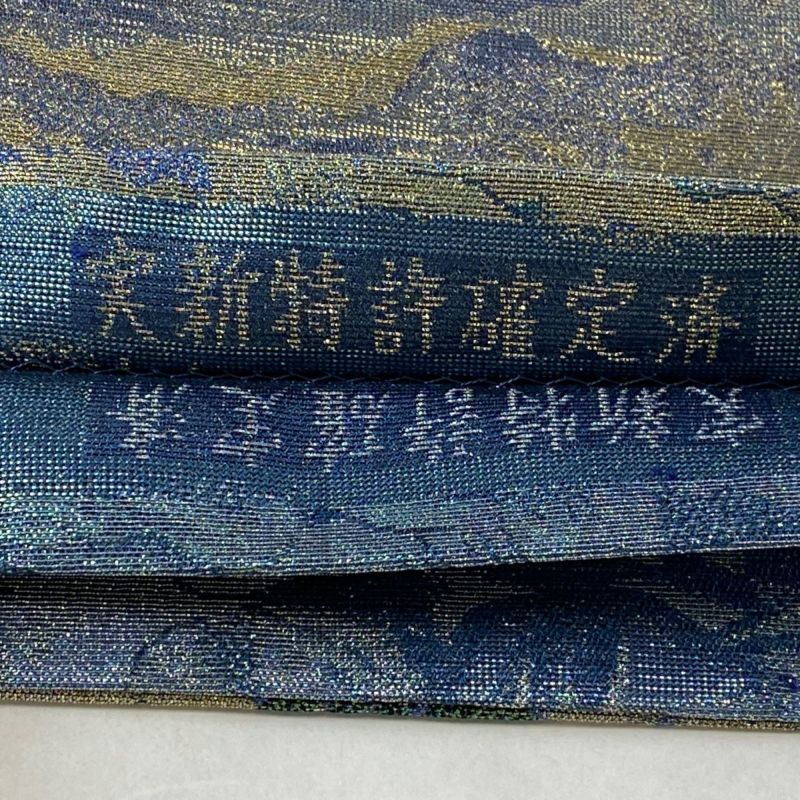 実新特許確定済
実新特許確定済